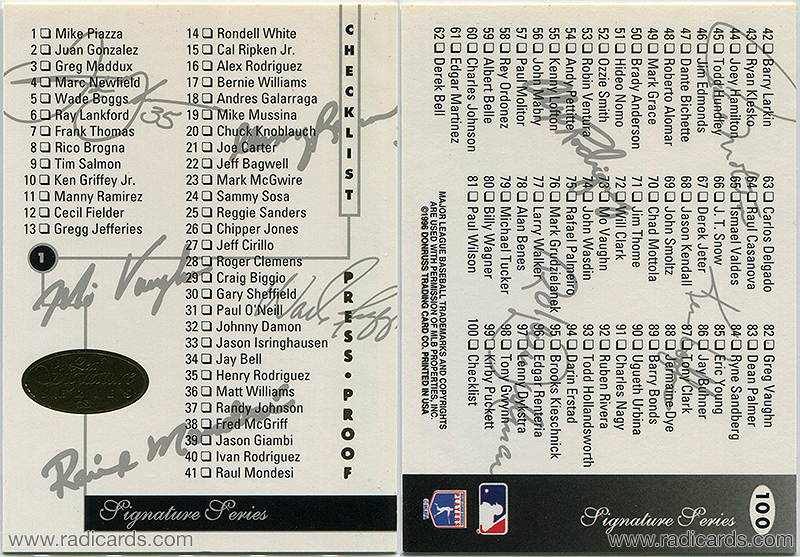 1 Mike Piazza
2 Juan Gonzalez
3 Greg Maddux
4 Marc Newfield
5 Wade Boggs
6 Ray Lankford
7 Frank Thomas
8 Rico Brogna
9 Tim Salmon
10 Ken Griffey Jr.
11 Manny Ramirez
12 Cecil Fielder
13 Gregg Jefferies
14 Rondell White
15 Cal Ripken Jr.
16 Alex Rodriguez
17 Bernie Williams
18 Andres Galarraga
19 Mike Mussina
20 Chuck Knoblauch
21 Joe Carter
22 Jeff Bagwell
23 Mark McGwire
24 Sammy Sosa
25 Reggie Sanders
26 Chipper Jones
27 Jeff Cirillo
28 Roger Clemens
29 Craig Biggio
30 Gary Sheffield
31 Paul O'Neill
32 Johnny Damon
33 Jason Isringhausen
34 Jay Bell
35 Henry Rodriguez
36 Matt Williams
37 Randy Johnson
38 Fred McGriff
39 Jason Giambi
40 Ivan Rodriguez
41 Raul Mondesi
CHECKLIST
PRESS • PROOF
1
35
Mo Vaughn
Wade Boggs
Signature
SERIES
Signature Series
www.radicards.com
42 Barry Larkin
43 Ryan Klesko
44 Joey Hamilton
45 Todd Hundley
46 Jim Edmonds
47 Dante Bichette
48 Roberto Alomar
49 Mark Grace
50 Brady Anderson
51 Hideo Nomo
52 Ozzie Smith
53 Robin Ventura
54 Andy Pettitte
55 Kenny Lofton
56 John Mabry
57 Paul Molitor
58 Rey Ordonez
59 Albert Belle
60 Charles Johnson
61 Edgar Martinez
62 Derek Bell
63 Carlos Delgado
64 Raul Casanova
65 Ismael Valdes
66 J. T. Snow
67 Derek Jeter
68 Jason Kendall
69 John Smoltz
70 Chad Mottola
71 Jim Thome
72 Will Clark
73 Mo Vaughn
74 John Wasdin
75 Rafael Palmeiro
76 Mark Grudzielanek
77 Larry Walker
78 Alan Benes
79 Michael Tucker
80 Billy Wagner
81 Paul Wilson
82 Greg Vaughn
83 Dean Palmer
84 Ryne Sandberg
85 Eric Young
86 Jay Buhner
87 Tony Clark
88 Jermaine Dye
89 Barry Bonds
90 Ugueth Urbina
91 Charles Nagy
92 Ruben Rivera
93 Todd Hollandsworth
94 Darin Erstad
95 Brooks Kieschnick
96 Edgar Renteria
97 Lenny Dykstra
98 Tony Gwynn
99 Kirby Puckett
100 Checklist
MAJOR LEAGUE BASEBALL TRADEMARKS AND COPYRIGHTS
ARE USED WITH PERMISSION OF MLB PROPERTIES, INC.
©1996 DONRUSS TRADING CARD CO. PRINTED IN USA
Signature Series
100
www.radicards.com